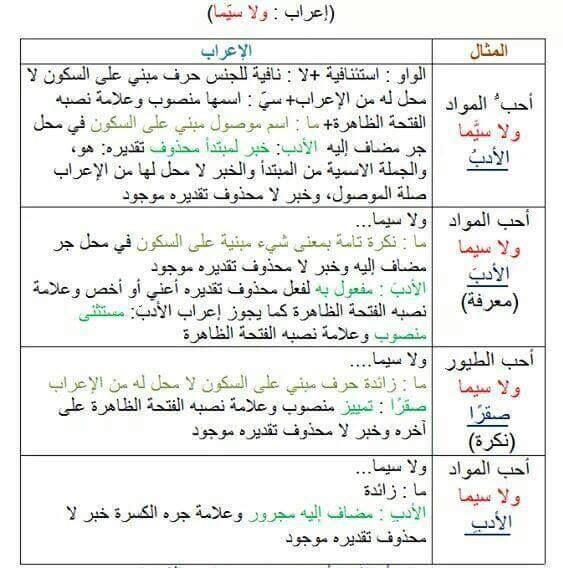 (إعراب : ولا سيّما)
المثال
الإعراب
أحب ُ المواد
ولا سيَّما
الأدبُ
الواو : استئنافية +لا : نافية للجنس حرف مبني على السكون لا
محل له من الإعراب+ سيّ : اسمها منصوب وعلامة نصبه
الفتحة الظاهرة+ ما : اسم موصول مبني على السكون في محل
جر مضاف إليه الأدبُ: خبر لمبتدأ محذوف تقديره: هو،
والجملة الاسمية من المبتدأ والخبر لا محل لها من الإعراب
صلة الموصول، وخبر لا محذوف تقديره موجود
أحب المواد
ولا سيما
الأدبَ
(معرفة)
ولا سيما...
ما : نكرة تامة بمعنى شيء مبنية على السكون في محل جر
مضاف إليه وخبر لا محذوف تقديره موجود
الأدبَ : مفعول به لفعل محذوف تقديره أعني أو أخص وعلامة
نصبه الفتحة الظاهرة كما يجوز إعراب الأدبَ: مستثنى
منصوب وعلامة نصبه الفتحة الظاهرة
أحب الطيور
ولا سيما
صقرًا
(نكرة)
ولا سيما....
ما : زائدة حرف مبني على السكون لا محل له من الإعراب
صقرًا : تمييز منصوب وعلامة نصبه الفتحة الظاهرة على
آخره وخبر لا محذوف تقديره موجود
أحب المواد
ولا سيما
الأدبِ
ولا سيما...
ما : زائدة
الأدبِ : مضاف إليه مجرور وعلامة جره الكسرة خبر لا
محذوف تقديره موجود